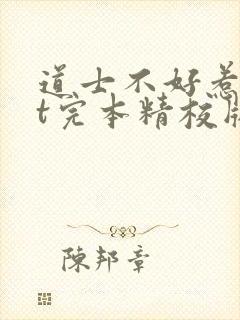 道士不好惹
t完本精校版
陳邦章